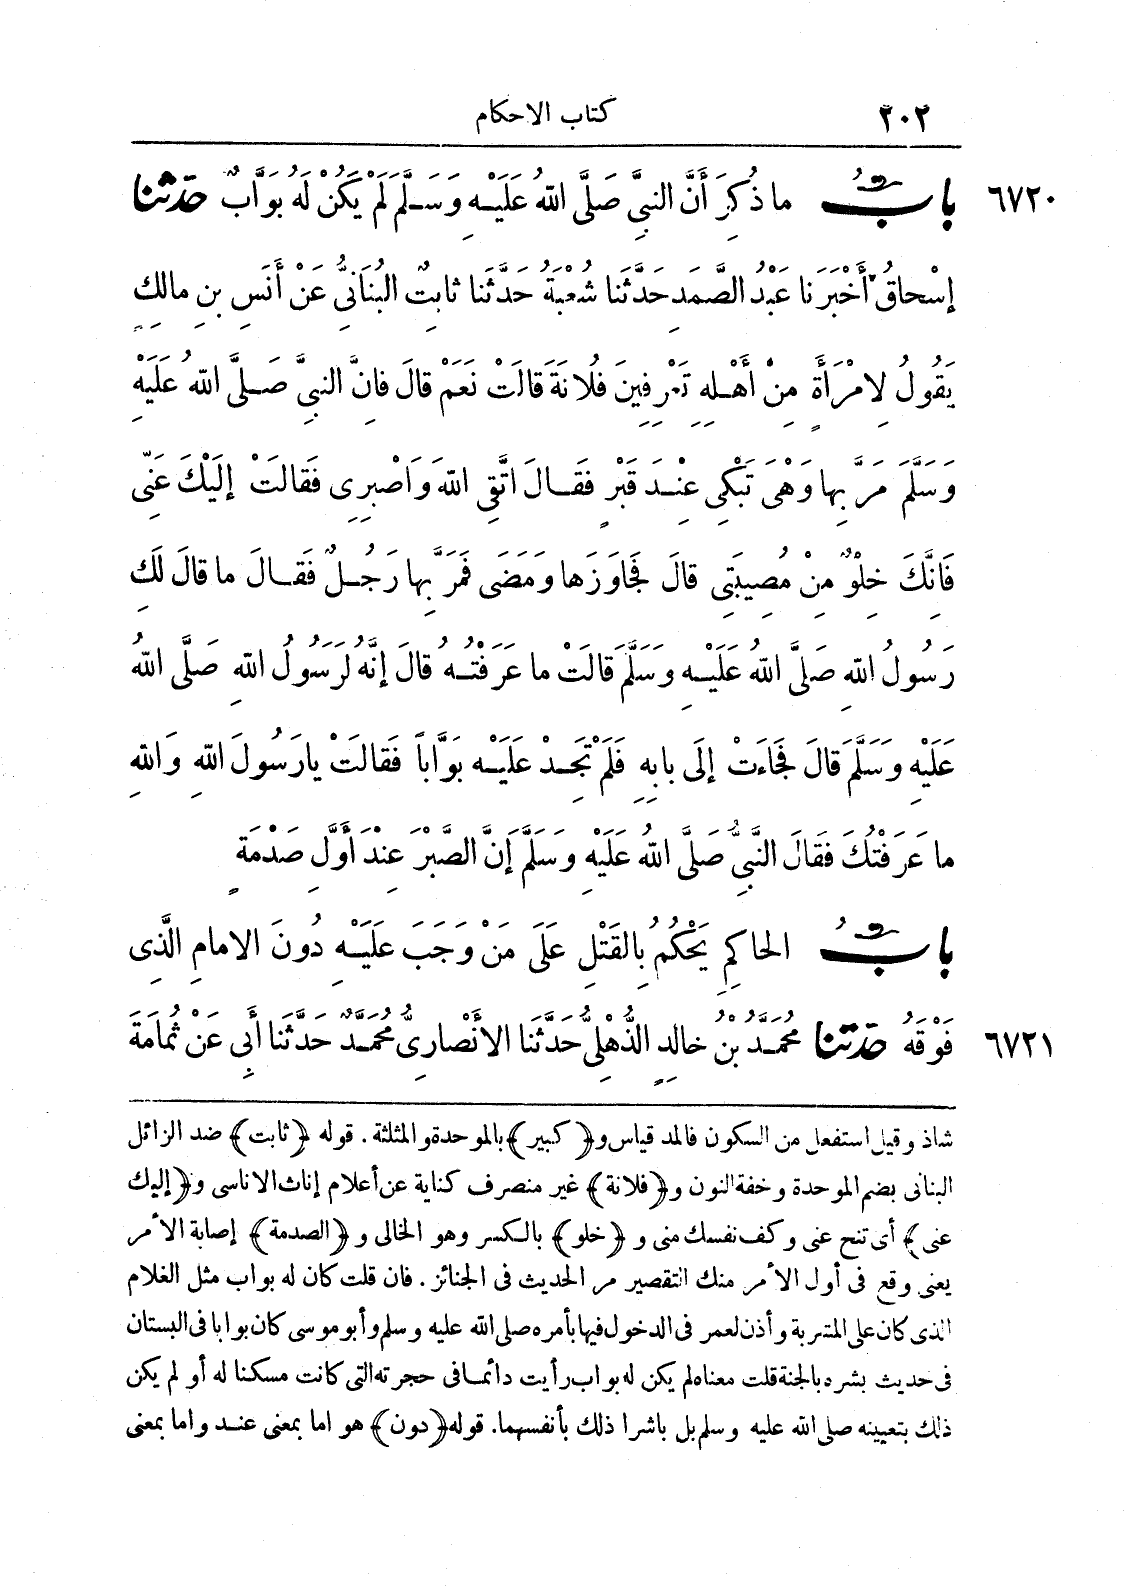 ٢٠٢ كتاب الاحكام
٦٧٢٠ بابٌ ما ذُكِرَ أَنَّ النبيَّ صَلَّى اللهُ عَلَيْهِ وَسَلَّمَ لَمْ يَكُنْ لَهُ بَوَّابٌ حَدَّثَنا
إِسْحاقُ أَخْبَرَنا عَبْدُ الصَّمَدِ حَدَّثَنا شُعْبَةُ حَدَّثَنا ثابِتٌ البُنَانِيُّ عَنْ أَنَسِ بنِ مالِكٍ
يَقُولُ لِامْرَأَةٍ مِنْ أَهْلِهِ تَعْرِفِينَ فُلانَةَ قالَتْ نَعَمْ قالَ فَانَّ النبيَّ صَلَّى اللهُ عَلَيْهِ
وَسَلَّمَ مَرَّ بِها وَهْىَ تَبْكِى عِنْدَ قَبْرٍ فَقالَ اتَّقِى اللهَ وَاصْبِرِى فَقالَتْ إلَيْكَ عَنِّى
فَانَّكَ خِلْوٌ مِنْ مُصِيبَتِى قالَ فَجَاوَزَها وَمَضَى فَمَرَّ بِها رَجُلٌ فَقالَ ما قالَ لَكِ
رَسُولُ اللهِ صَلَّى اللهُ عَلَيْهِ وَسَلَّمَ قالَتْ ما عَرَفْتُهُ قالَ إنَّهُ لَرَسُولُ اللهِ صَلَّى اللهُ
عَلَيْهِ وَسَلَّمَ قالَ فَجَاءَتْ إلَى بابِهِ فَلَمْ تَجِدْ عَلَيْهِ بَوَّاباً فَقالَتْ يارَسُولَ اللهِ وَاللهِ
ما عَرَفْتُكَ فَقالَ النَّبِيُّ صَلَّى اللهُ عَلَيْهِ وَسَلَّمَ إنَّ الصَّبْرَ عِنْدَ أَوَّلِ صَدْمَةٍ
بابُ الحاكِمِ يَحْكُمُ بِالقَتْلِ عَلَى مَنْ وَجَبَ عَلَيْهِ دُونَ الامامِ الَّذِى
٦٧٢١ فَوْقَهُ حَدَّثَنا مُحَمَّدُ بْنُ خالِدٍ الذُّهْلِىُّ حَدَّثَنا الأَنْصارِىُّ مُحَمَّدٌ حَدَّثَنا أَبِى عَنْ ثُمَامَةَ
شاذ وقيل استفعل من السكون فالمد قياس و﴿كبير﴾ بالموحدة والمثلثة. قوله ﴿ثابت﴾ ضد الزائل
البنانى بضم الموحدة وخفة النون و﴿فلانة﴾ غير منصرف كناية عن أعلام إناث الاناسى و﴿إليك
عنى﴾ أى تنح عنى وكف نفسك منى و ﴿خلو﴾ بالكسر وهو الخالى و﴿الصدمة﴾ إصابة الأمر
يعنى وقع فى أول الأمر منك التقصير مر الحديث فى الجنائز. فان قلت كان له بواب مثل الغلام
الذى كان على المشربة وأذن لعمر فى الدخول فيها بأمره صلى الله عليه وسلم وأبو موسى كان بوابا فى البستان
فى حديث بشره بالجنة قلت معناه لم يكن له بواب رأيت دائما فى حجرته التى كانت مسكنا له أو لم يكن
ذلك بتعيينه صلى الله عليه وسلم بل باشرا ذلك بأنفسهما. قوله ﴿دون﴾ هو اما بمعنى عند واما بمعنى